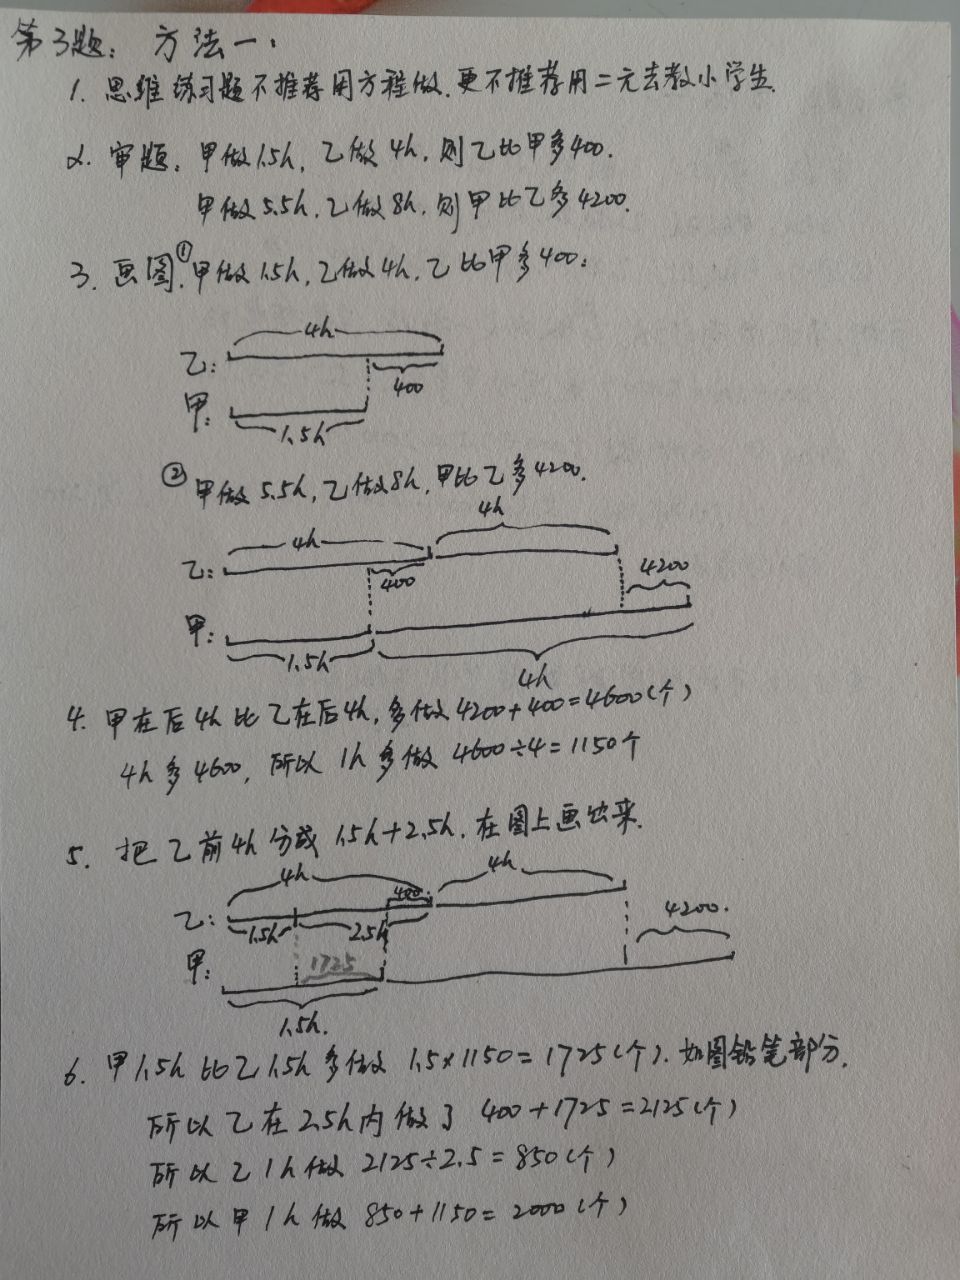 第3题: 方法一:
1. 思维练习题不推荐用方程做.更不推荐用二元去教小学生.
2. 审题: 甲做1.5h, 乙做4h, 则乙比甲多400.
甲做5.5h, 乙做8h, 则甲比乙多4200.
3. 画图. ①甲做1.5h, 乙做4h, 乙比甲多400:
4h
乙:
400
甲:
1.5h
②甲做5.5h, 乙做8h, 甲比乙多4200.
4h 4h
乙: 400 4200
甲:
1.5h 4h
4. 甲在后4h比乙在后4h, 多做4200+400=4600(个)
4h多4600, 所以1h多做4600÷4=1150个
5. 把乙前4h分成1.5h+2.5h. 在图上画出来.
4h 400 4h
乙: 4200.
1.5h 2.5h
甲: 1725
1.5h.
6. 甲1.5h比乙1.5h多做1.5×1150=1725(个). 如图铅笔部分.
所以乙在2.5h内做了 400+1725=2125(个)
所以乙1h做 2125÷2.5=850(个)
所以甲1h做 850+1150=2000(个)